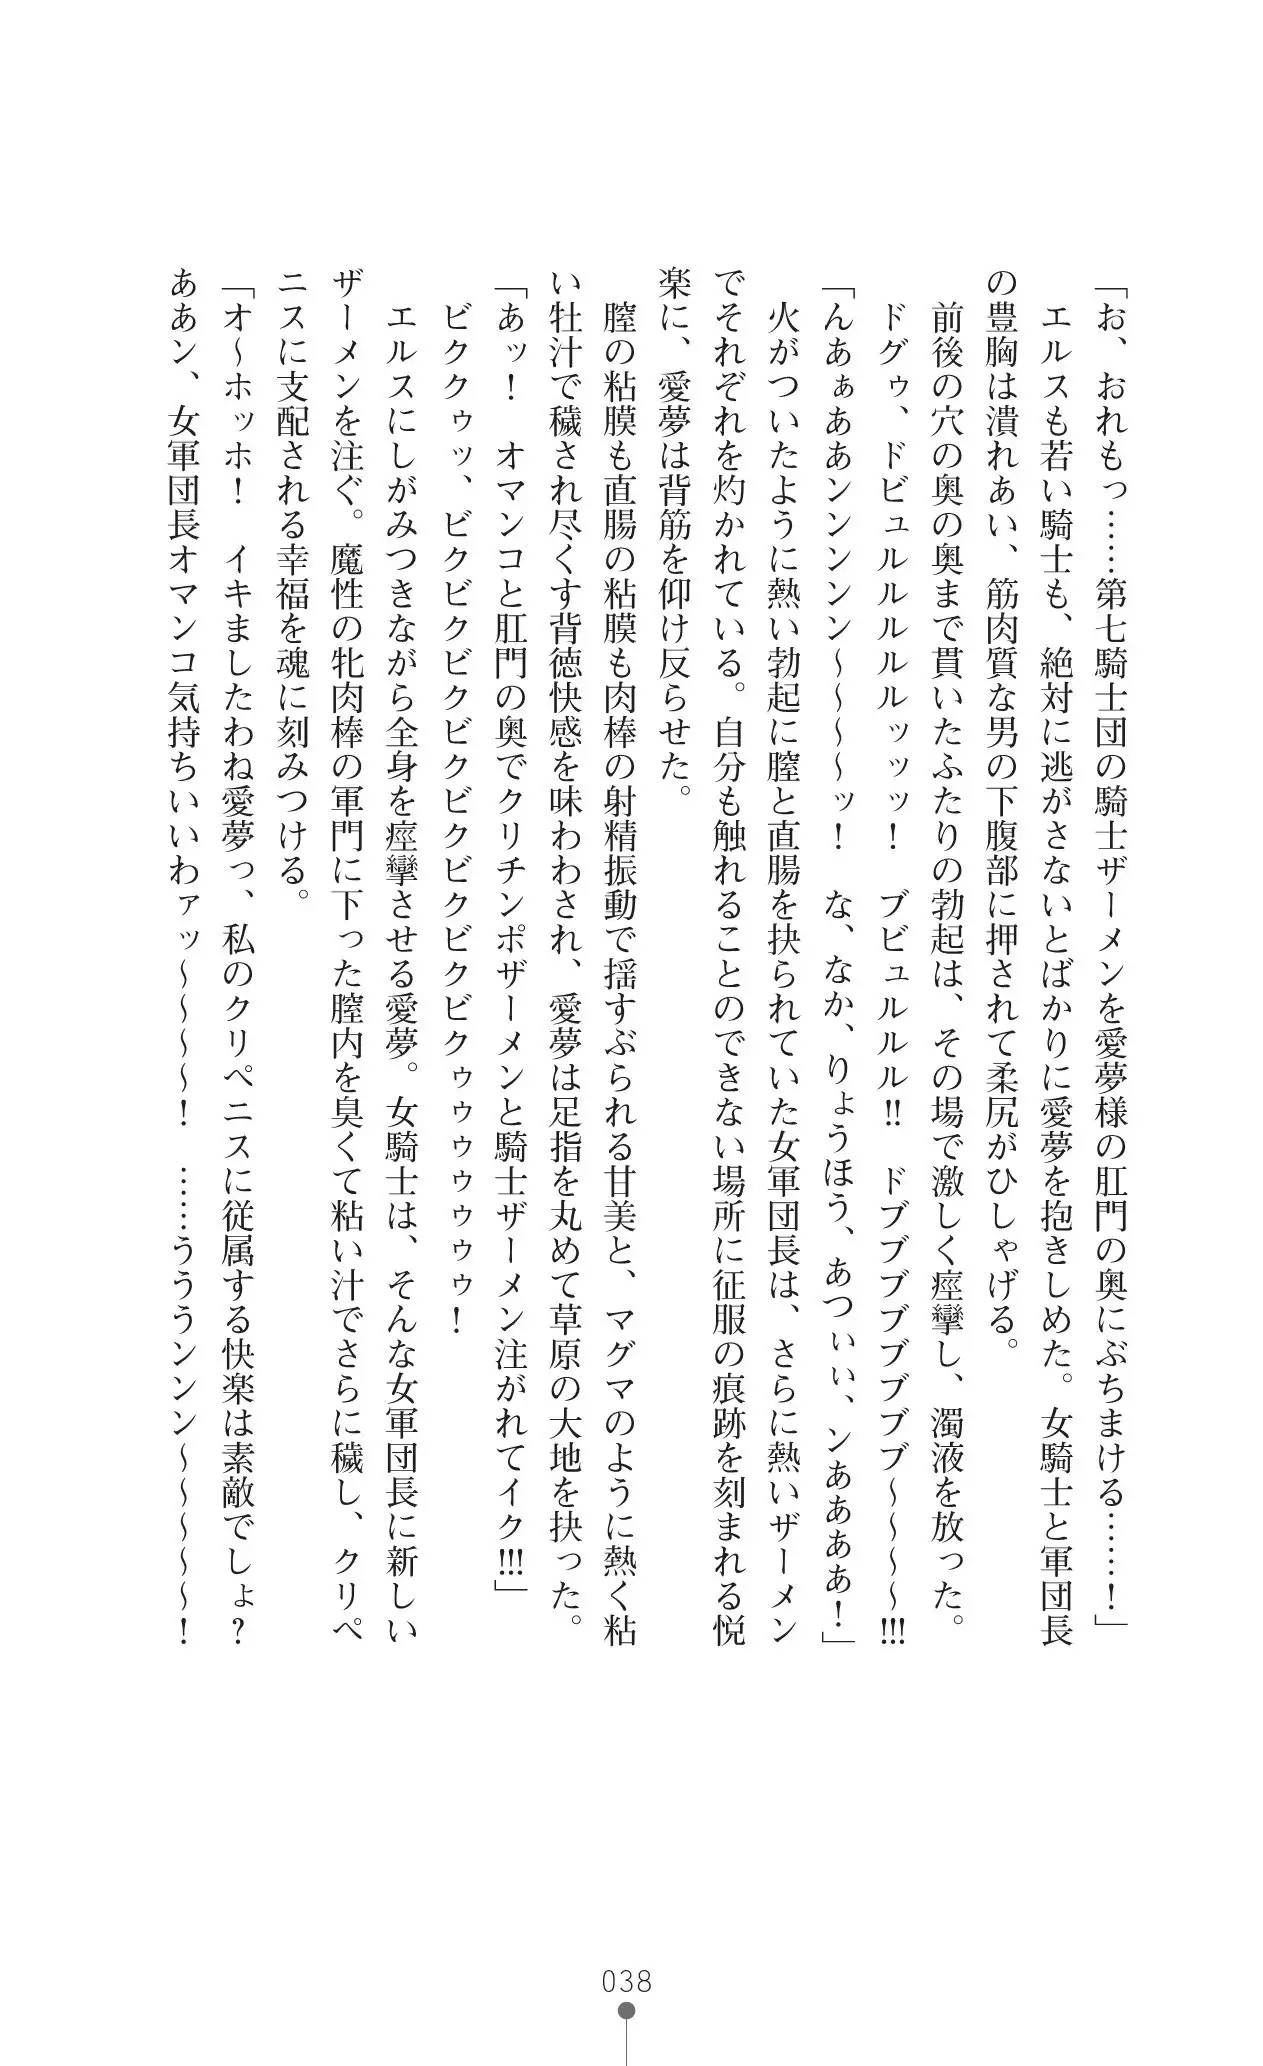 「お、おれもっ……第七騎士団の騎士ザーメンを愛夢様の肛門の奥にぶちまける……！」
エルスも若い騎士も、絶対に逃がさないとばかりに愛夢を抱きしめた。女騎士と軍団長
の豊胸は潰れあい、筋肉質な男の下腹部に押されて柔尻がひしゃげる。
前後の穴の奥の奥まで貫いたふたりの勃起は、その場で激しく痙攣し、濁液を放った。
ドグゥ、ドビュルルルルルッッッ！　ブビュルルル!!　ドブブブブブブブ～～～～!!!
「んあぁああンンンンン～～～～ッ！　な、なか、りょうほう、あつぃぃ、ンああああ！」
火がついたように熱い勃起に膣と直腸を抉られていた女軍団長は、さらに熱いザーメン
でそれぞれを灼かれている。自分も触れることのできない場所に征服の痕跡を刻まれる悦
楽に、愛夢は背筋を仰け反らせた。
膣の粘膜も直腸の粘膜も肉棒の射精振動で揺すぶられる甘美と、マグマのように熱く粘
い牡汁で穢され尽くす背徳快感を味わわされ、愛夢は足指を丸めて草原の大地を抉った。
「あッ！　オマンコと肛門の奥でクリチンポザーメンと騎士ザーメン注がれてイク!!!」
ビククゥッ、ビクビクビクビクビクビクビクビクゥゥゥゥゥゥゥ！
エルスにしがみつきながら全身を痙攣させる愛夢。女騎士は、そんな女軍団長に新しい
ザーメンを注ぐ。魔性の牝肉棒の軍門に下った膣内を臭くて粘い汁でさらに穢し、クリペ
ニスに支配される幸福を魂に刻みつける。
「オ～ホッホ！　イキましたわね愛夢っ、私のクリペニスに従属する快楽は素敵でしょ？
ああン、女軍団長オマンコ気持ちいいわァッ～～～～～！　……うううンンン～～～～～！
038